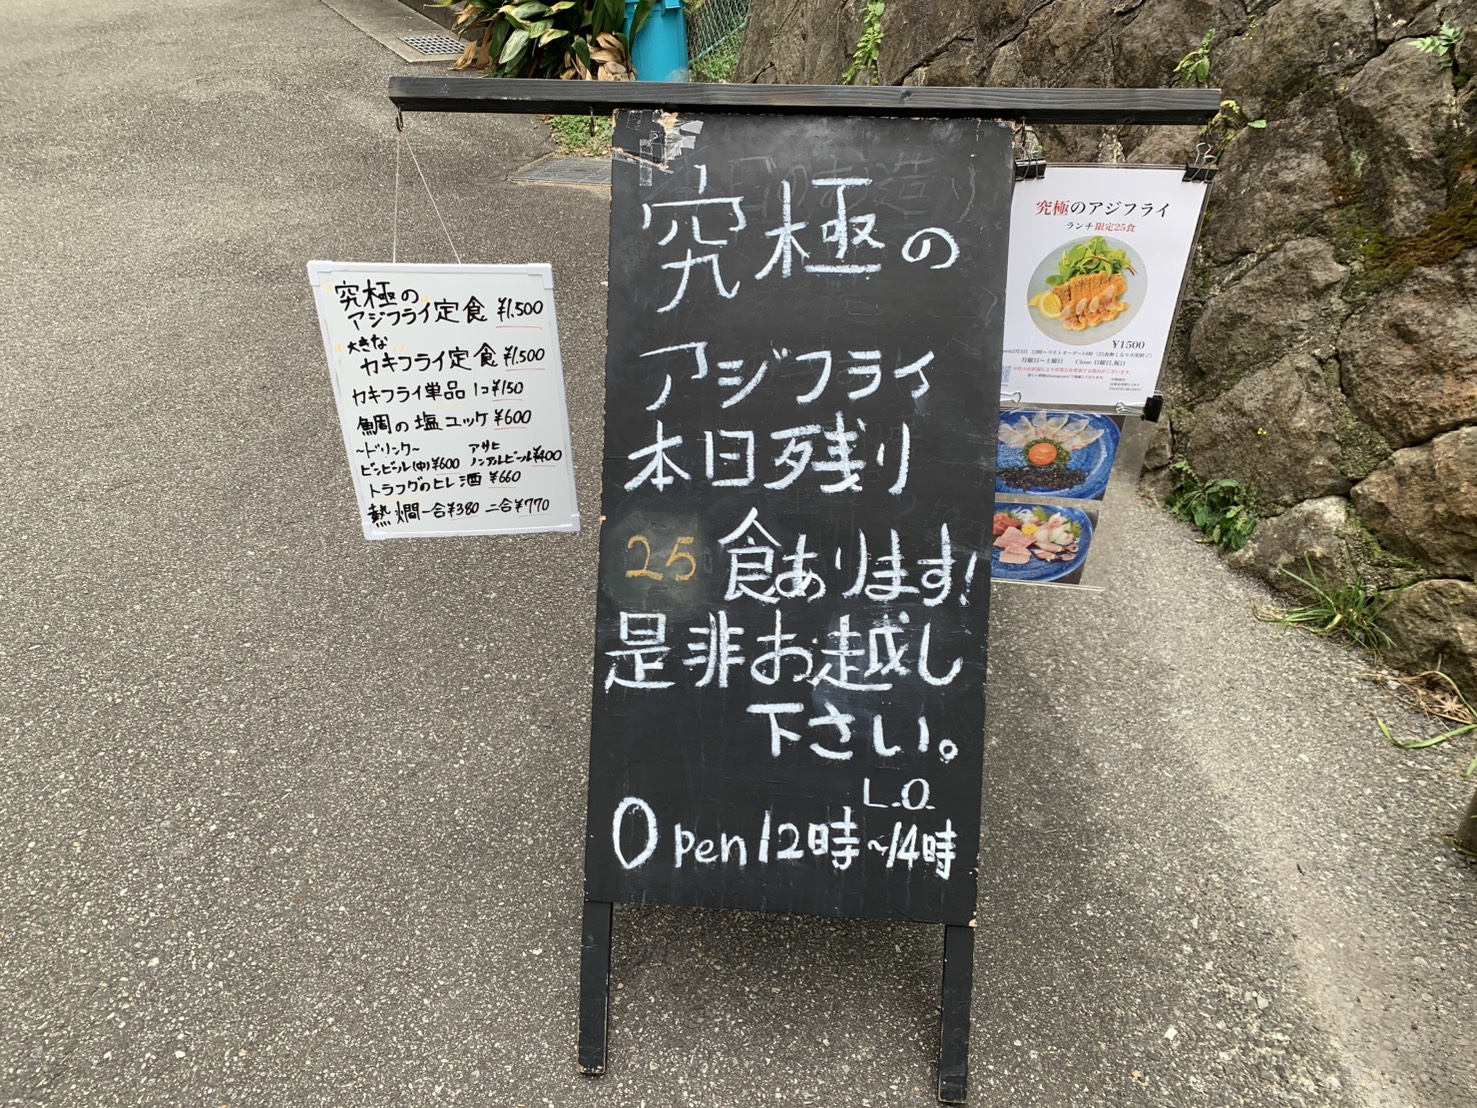 究極の
アジフライ
本日残り
25 食あります!
是非お越し
下さい。
L.O.
Open 12時~14時
究極の
アジフライ定食 ¥1.500
大きな
カキフライ定食 ¥1.500
カキフライ単品 1コ¥150
鯛の塩ユッケ ¥600
~ドリンク~
ビンビール(中)¥600
アサヒ
ノンアルビール¥400
トラフグのヒレ酒 ¥660
熱燗 一合¥380 二合¥770
究極のアジフライ
ランチ限定25食
¥1500
月曜日~土曜日 Close 日曜日、祝日